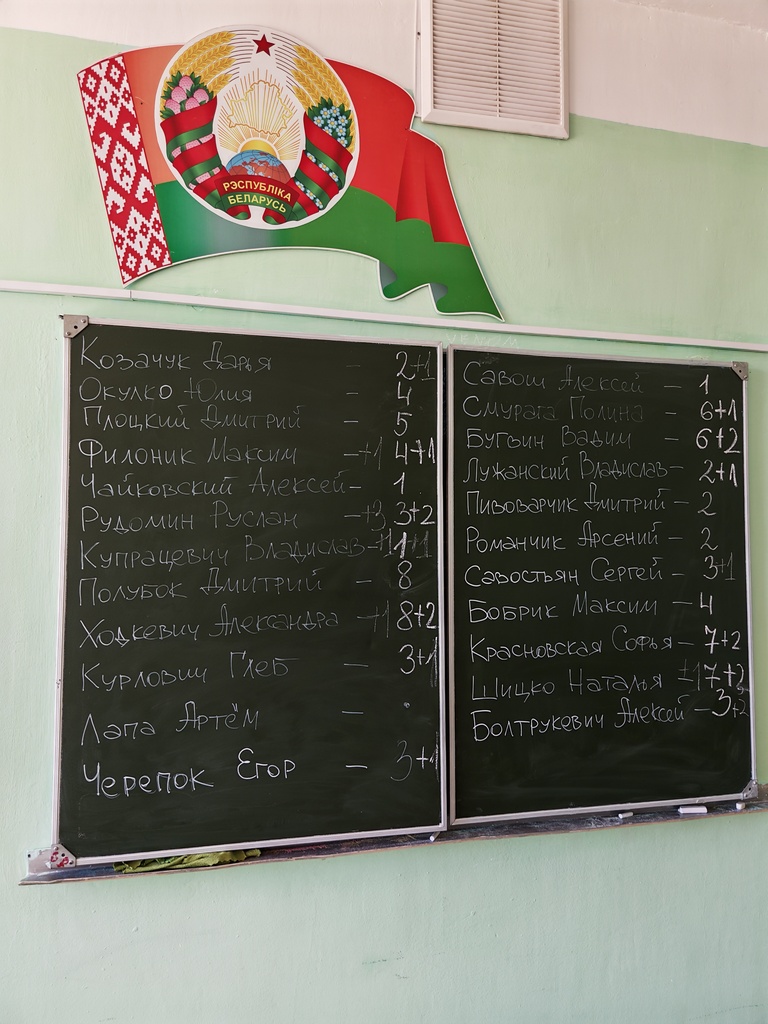 РЭСПУБЛІКА
БЕЛАРУСЬ
Козачук Дарья — 2+1
Окулко Юлия — 4
Плоцкий Дмитрий — 5
Филоник Максим —+1 4+1
Чайковский Алексей — 1
Рудомин Руслан —+3 3+2
Купрацевич Владислав —+1 1+1
Полубок Дмитрий — 8
Ходкевич Александра —+1 8+2
Курлович Глеб — 3+1
Лапа Артём —
Черепок Егор — 3+1
Савош Алексей — 1
Смурага Полина — 6+1
Бугвин Вадим — 6+2
Лужанский Владислав — 2+1
Пивоварчик Дмитрий — 2
Романчик Арсений — 2
Савостьян Сергей — 3+1
Бобрик Максим — 4
Красновская Софья — 7+2
Шицко Наталья ±1 7+2
Болтрукевич Алексей — 3+2